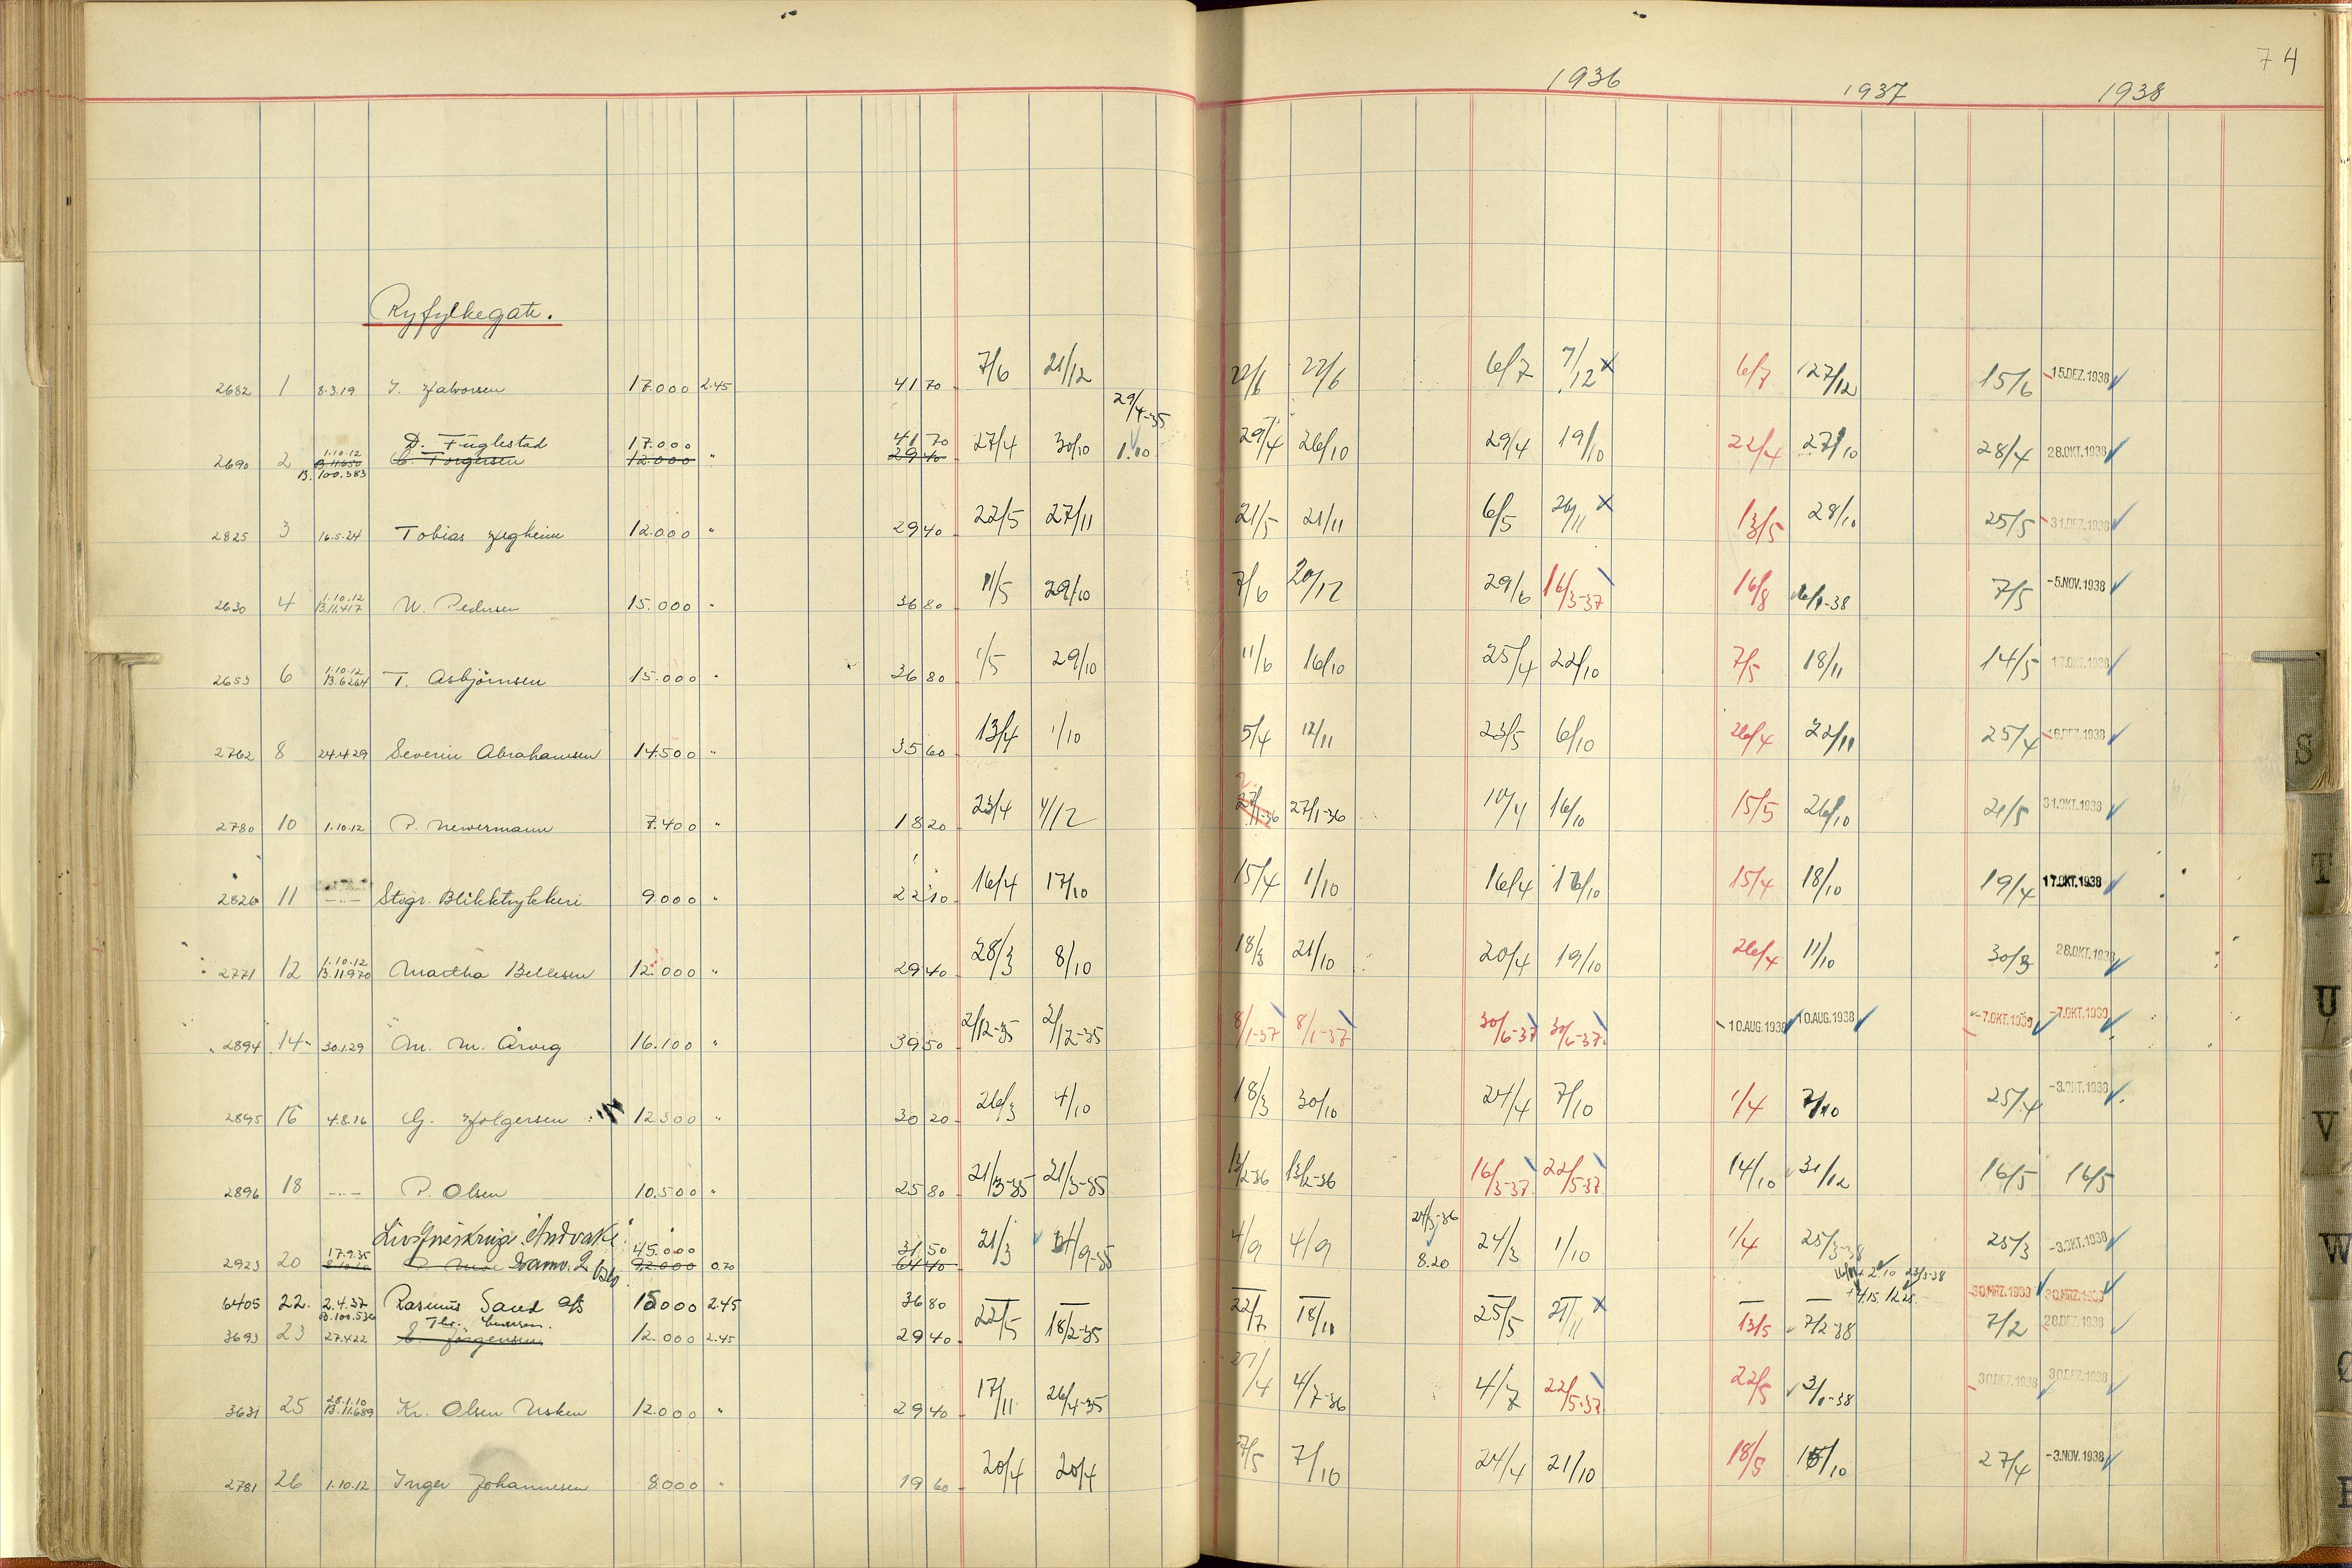 74
1936 1937 1938
Ryfylkegate.
2682 1 8.3.19 17.000 2.45 41 70 7/6 21/12 22/6 22/6 6/7 7/12 x 6/7 27/12 15/6 15.DEZ.1938
29/4-35
D. Fuglestad 17.000 41 70
2690 2 1.10.12 B.11650 B.100.583 Torgersen 12.000 " 29 40 27/4 30/10 1.00 29/4 26/10 29/4 19/10 22/4 27/10 28/4 28.OKT.1938
2825 3 16.5.24 Tobias 12.000 " 29 40 22/5 27/11 21/5 21/11 6/5 x 13/5 28/10 25/5 31.DEZ.1938
2630 4 1.10.12 B.11.417 W. Pedersen 15.000 " 36 80 11/5 29/10 7/6 20/12 29/6 16/3-37 16/8 7/5 -5.NOV.1938
2653 6 1.10.12 B.6264 T. Asbjörnsen 15.000 " 36 80 1/5 29/10 11/6 16/10 25/4 22/10 7/5 18/11 14/5 17.OKT.1938
2762 8 24.4.29 Severin Abrahamsen 14.500 " 35 60 13/4 1/10 5/4 12/11 23/5 6/10 26/4 22/11 25/4
2780 10 1.10.12 P. Newermann 7.400 " 18 20 23/4 4/12 27/1-36 27/1-36 10/4 16/10 15/5 26/10 21/5 31.OKT.1938
2826 11 -"- Stvgr. Blikktrykkeri 9.000 " 22 10 16/4 17/10 15/4 1/10 16/4 16/10 15/4 18/10 19/4 17.OKT.1938
2771 12 1.10.12 B.11970 Martha Bellesen 12.000 " 29 40 28/3 8/10 18/3 21/10 20/4 19/10 26/4 11/10 30/3 28.OKT.1938
2894 14 30.1.29 M. M. Årvig 16.100 " 39 50 2/12-35 2/12-35 8/1-37 8/1-37 30/6-37 30/6-37 10.AUG.1938 10.AUG.1938 -7.OKT.1939 -7.OKT.1939
2895 16 4.8.16 G. Holgersen 12.300 " 30 20 26/3 4/10 18/3 30/10 24/4 7/10 1/4 7/10 25/4 -3.OKT.1938
2896 18 -"- P. Olsen 10.500 " 25 80 21/3-35 21/3-35 13/2-36 13/2-36 16/3-37 22/5-37 14/10 31/12 16/5 16/5
Livsforsikring "Andvake" 45.000 31 50 24/3-36
2923 20 17.9.35 92.000 0.70 64 40 21/3 4/9 4/9 8.20 24/3 1/10 1/4 25/3-38 25/3 -3.OKT.1938
6405 22. 2.4.37 B.100.536 Rasmus Sand a/s 15000 2.45 36 80 30.MRZ.1939 30.MRZ.1939
3693 23 27.4.22 E. Jörgensen 12.000 2.45 29 40 22/5 18/2-35 22/7 18/11 25/5 21/11 x 13/5 7/2-38 7/2 28.DEZ.1938
3631 25 28.1.10 B.11.689 Kr. Olsen Usken 12.000 " 29 40 17/11 26/4-35 4/7-36 4/7 22/5-37 22/5 3/1-38 30.DEZ.1938 30.DEZ.1938
2781 26 1.10.12 Inger Johannesen 8000 " 19 60 20/4 20/4 7/5 7/10 24/4 21/10 18/5 15/10 27/4 -3.NOV.1938
S
T
U
V
W